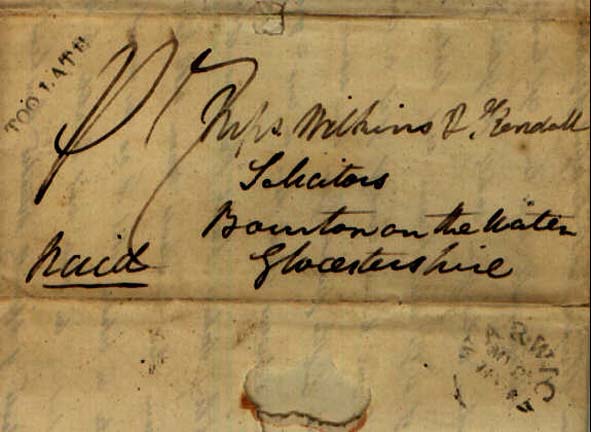 TOO LATE
Messrs Wilkins & Kendall
Solicitors
Bourton on the Water
Glocestershire
Paid
WARWIC